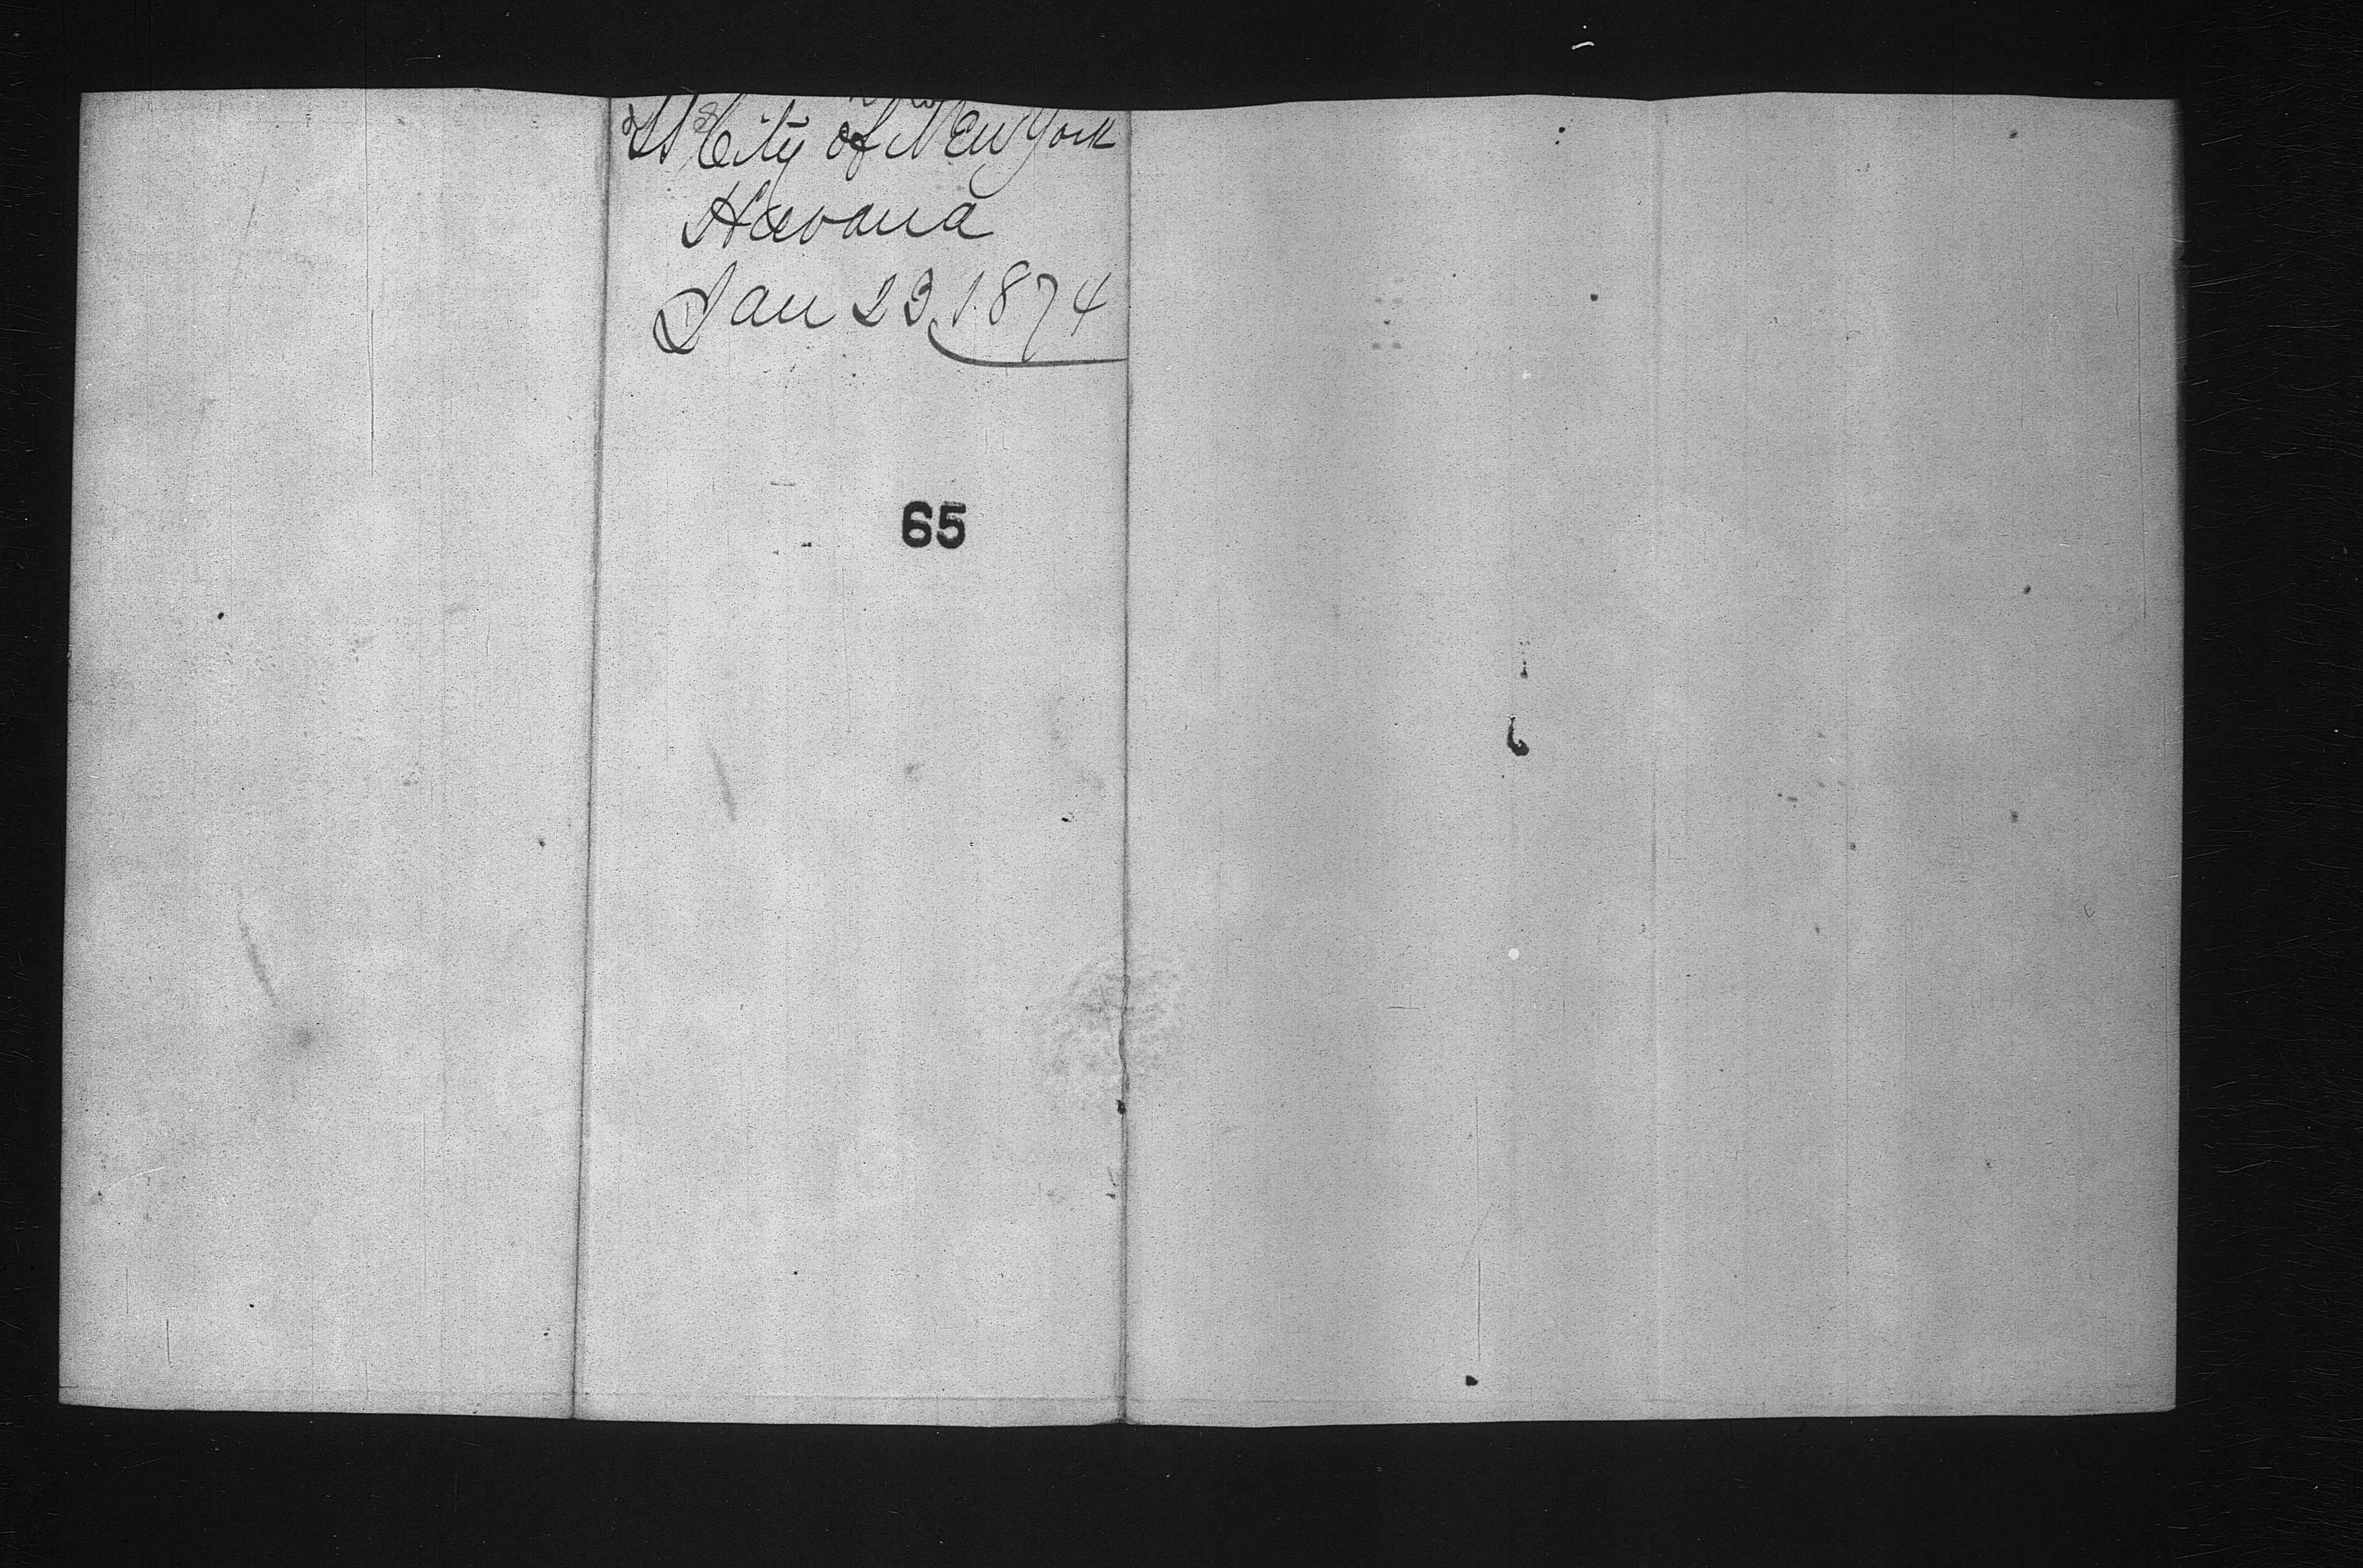 SS City of New York
Havana
Jan 23, 1874
65